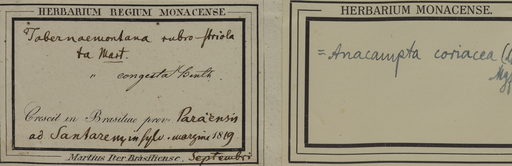 HERBARIUM REGIUM MONACENSE
Tabernaemontana rubro-striola
ta Mart.
" congesta Benth.
Crescit in Brasiliae prov. Paraënsis
ad Santarem, in sylv. margine 1819
Martius Iter Brasiliense. Septembri
HERBARIUM MONACENSE.
= Anacampta coriacea
Mgf